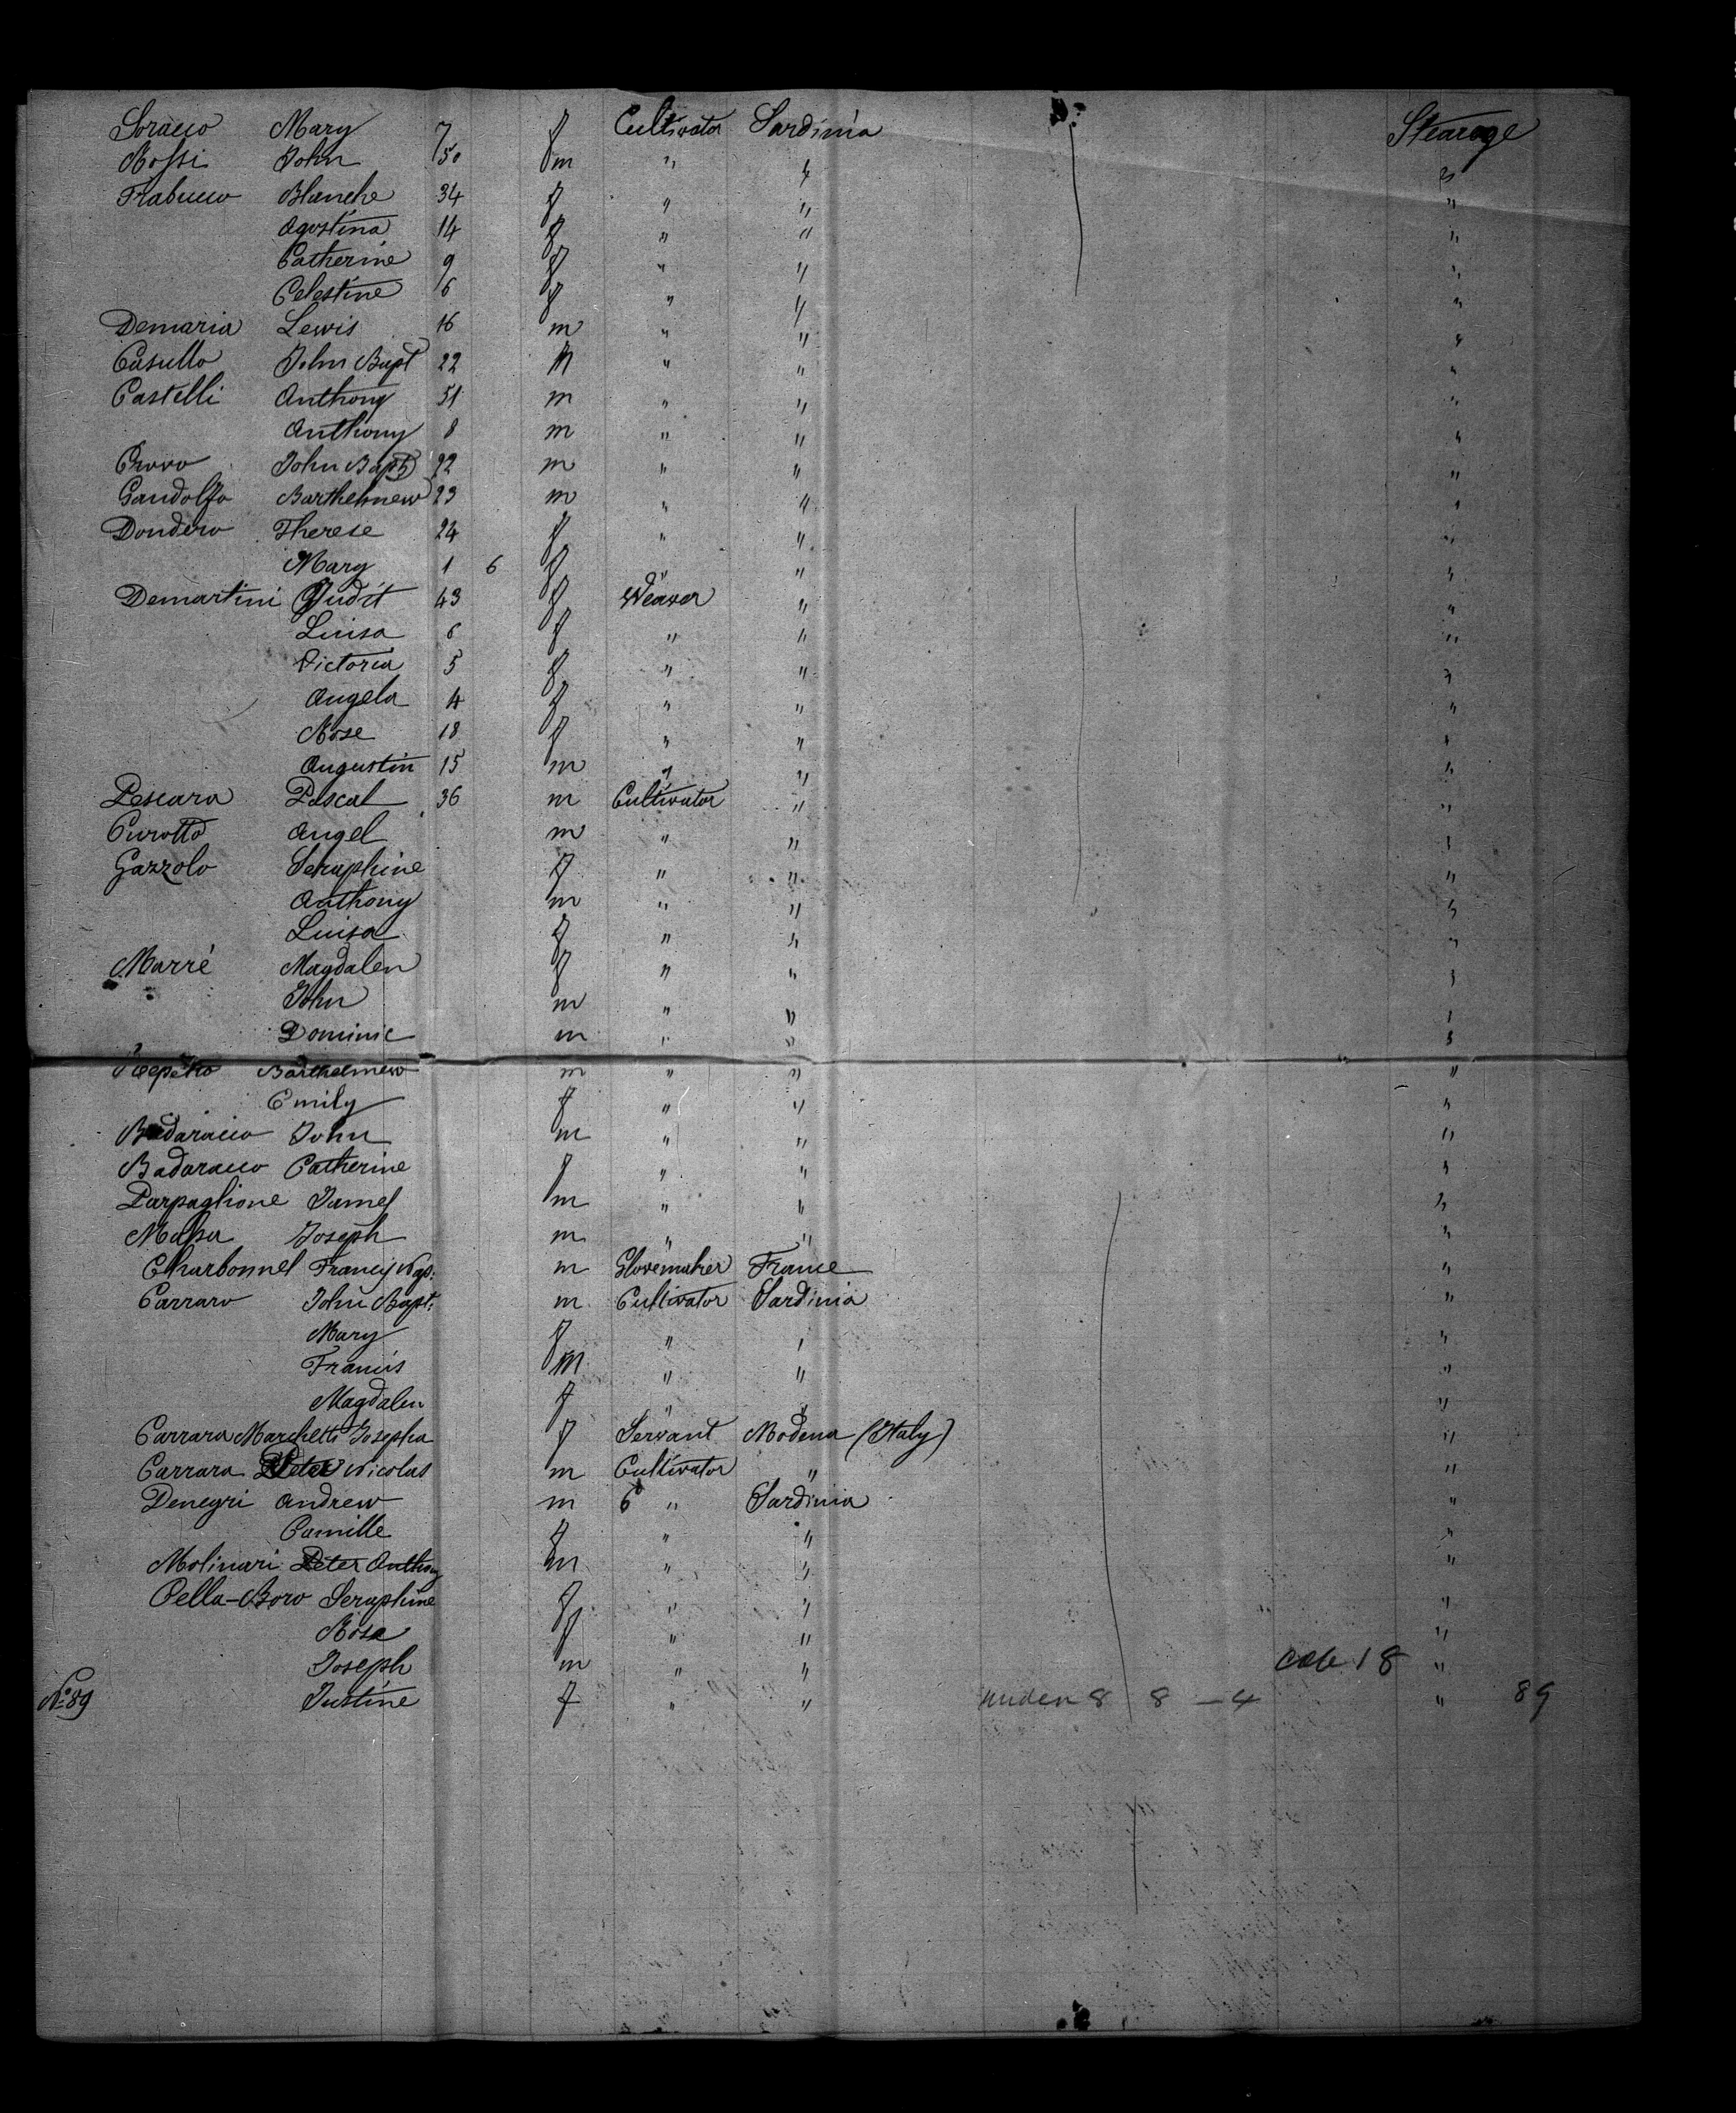 Soracco Mary 7 f Cultivator Sardinia Stearage
Rossi John 50 m " " "
Trabucco Blanche 34 f " " "
Agostina 14 f " " "
Catherine 9 f " " "
Celestine 6 f " " "
Demaria Lewis 16 m " " "
Casullo John Bapt 22 m " " "
Castelli Anthony 51 m " " "
Anthony 8 m " " "
John Bapt 22 m " " "
Gandolfo Barthelmew 23 m " " "
Dondero Therese 24 f " " "
Mary 1 6 f " " "
Demartini Judit 43 f Weaver " "
Luisa 6 f " " "
Victoria 5 f " " "
Angela 4 f " " "
Rose 18 f " " "
Augustin 15 m " " "
Pescara Pascal 36 m Cultivator " "
Curotto Angel m " " "
Gazzolo Seraphine f " " "
Anthony m " " "
Luisa f " " "
Marré Magdalen f " " "
John m " " "
Dominic m " " "
Repetto Barthelmew m " " "
Emily f " " "
Badaracco John m " " "
Badaracco Catherine f " " "
Parpaglione James m " " "
Massa Joseph m " " "
Charbonnel Francis Nap: m Glovemaker France "
Carraro John Bapt: m Cultivator Sardinia "
Mary f " " "
Francis m " " "
Magdalen f " " "
Carrara Marchetti Josepha f Servant Modena (Italy) "
Carrara Peter Nicolas m Cultivator " "
Denegri Andrew m C " Sardinia "
Camille f " " "
Molinari Peter Anthony m " " "
Cella-Boro Seraphine f " " "
Rosa f " " "
Joseph m " " 18 "
No. 89 Justine f " " under 8 8 - 4 " 89